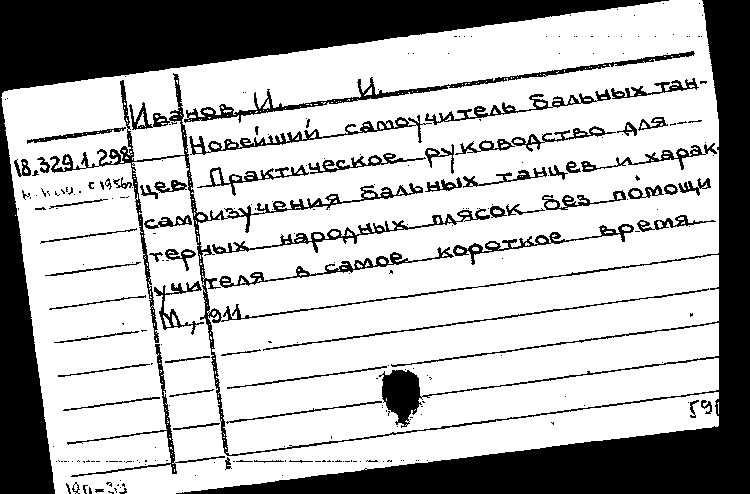 Иванов, И. И.
18.329.1.298
Новейший самоучитель бальных тан-
цев Практическое руководство для
самоизучения бальных танцев и харак-
терных народных плясок без помощи
учителя в самое короткое время
М., 1911.